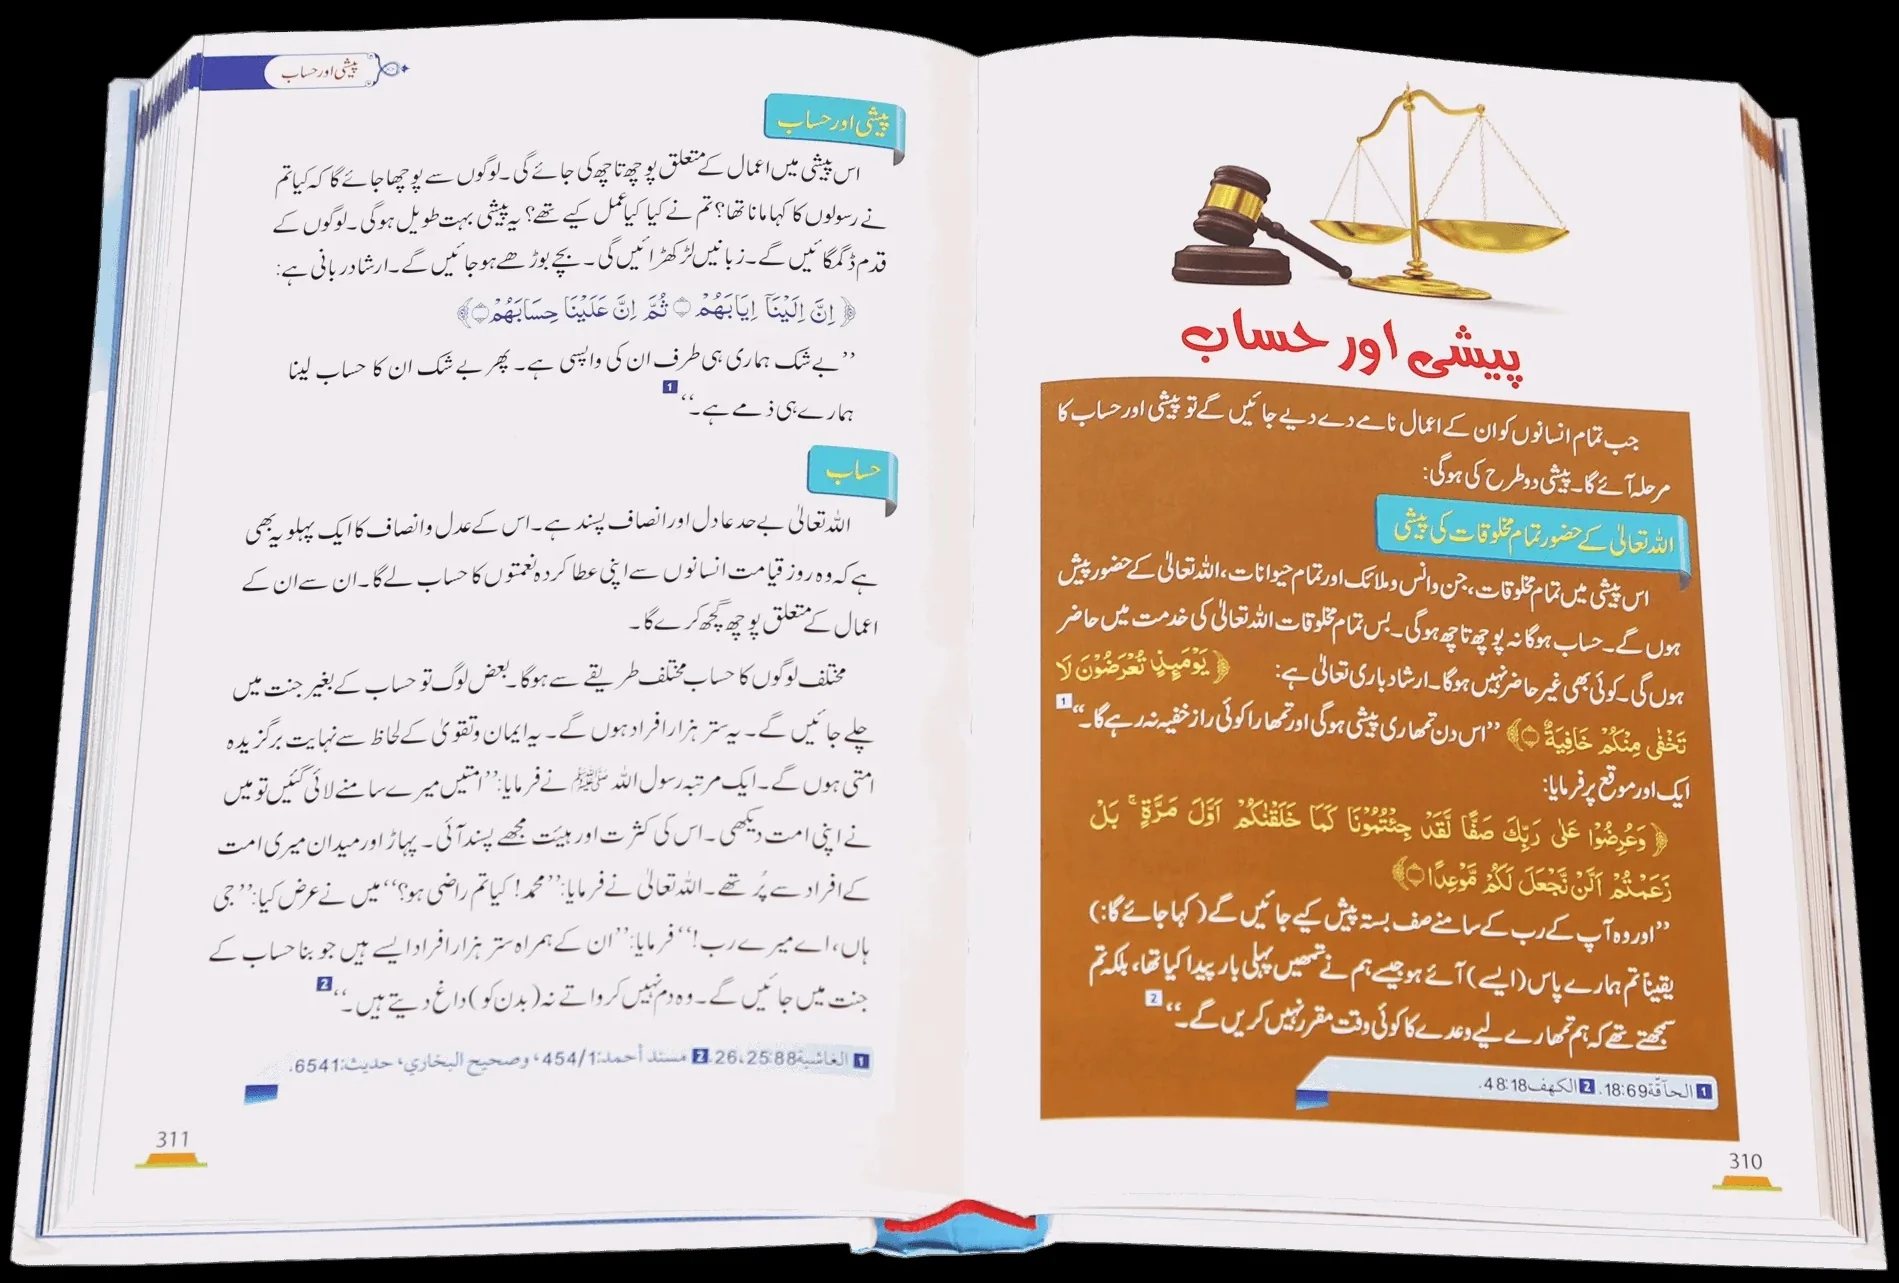 پیشی اور حساب
جب تمام انسانوں کو ان کے اعمال نامے دے دیے جائیں گے تو پیشی اور حساب کا
مرحلہ آئے گا۔ پیشی دو طرح کی ہوگی:
اللہ تعالیٰ کے حضور تمام مخلوقات کی پیشی
اس پیشی میں تمام مخلوقات، جن وانس و ملائک اور تمام حیوانات، اللہ تعالیٰ کے حضور پیش
ہوں گے۔ حساب ہوگا نہ پوچھ تاچھ ہوگی۔ بس تمام مخلوقات اللہ تعالیٰ کی خدمت میں حاضر
ہوں گی۔ کوئی بھی غیر حاضر نہیں ہوگا۔ ارشاد باری تعالیٰ ہے: ﴿يَوْمَىِٕذٍ تُعْرَضُوْنَ لَا
تَخْفٰى مِنْكُمْ خَافِيَةٌ﴾ ’’اس دن تمھاری پیشی ہوگی اور تمھارا کوئی راز خفیہ نہ رہے گا۔‘‘ 1
ایک اور موقع پر فرمایا:
﴿وَعُرِضُوْا عَلٰى رَبِّكَ صَفًّا لَقَدْ جِئْتُمُوْنَا كَمَا خَلَقْنٰكُمْ اَوَّلَ مَرَّةٍۭ بَلْ
زَعَمْتُمْ اَلَّنْ نَّجْعَلَ لَكُمْ مَّوْعِدًا﴾
’’اور وہ آپ کے رب کے سامنے صف بستہ پیش کیے جائیں گے (کہا جائے گا:)
یقیناً تم ہمارے پاس (ایسے) آئے ہو جیسے ہم نے تمھیں پہلی بار پیدا کیا تھا، بلکہ تم
سمجھتے تھے کہ ہم تمھارے لیے وعدے کا کوئی وقت مقرر نہیں کریں گے۔‘‘ 2
1 الحآقّة 18:69. 2 الكهف 48:18.
310
پیشی اور حساب
پیشی اور حساب
اس پیشی میں اعمال کے متعلق پوچھ تاچھ کی جائے گی۔ لوگوں سے پوچھا جائے گا کہ کیا تم
نے رسولوں کا کہا مانا تھا؟ تم نے کیا کیا عمل کیے تھے؟ یہ پیشی بہت طویل ہوگی۔ لوگوں کے
قدم ڈگمگائیں گے۔ زبانیں لڑکھڑائیں گی۔ بچے بوڑھے ہو جائیں گے۔ ارشاد ربانی ہے:
﴿اِنَّ اِلَيْنَاۤ اِيَابَهُمْ ثُمَّ اِنَّ عَلَيْنَا حِسَابَهُمْ﴾
’’بے شک ہماری ہی طرف ان کی واپسی ہے۔ پھر بے شک ان کا حساب لینا
ہمارے ہی ذمے ہے۔‘‘ 1
حساب
اللہ تعالیٰ بے حد عادل اور انصاف پسند ہے۔ اس کے عدل و انصاف کا ایک پہلو یہ بھی
ہے کہ وہ روز قیامت انسانوں سے اپنی عطا کردہ نعمتوں کا حساب لے گا۔ ان سے ان کے
اعمال کے متعلق پوچھ گچھ کرے گا۔
مختلف لوگوں کا حساب مختلف طریقے سے ہوگا۔ بعض لوگ تو حساب کے بغیر جنت میں
چلے جائیں گے۔ یہ ستر ہزار افراد ہوں گے۔ یہ ایمان و تقویٰ کے لحاظ سے نہایت برگزیدہ
امتی ہوں گے۔ ایک مرتبہ رسول اللہ ﷺ نے فرمایا: ’’امتیں میرے سامنے لائی گئیں تو میں
نے اپنی امت دیکھی۔ اس کی کثرت اور ہیئت مجھے پسند آئی۔ پہاڑ اور میدان میری امت
کے افراد سے پُر تھے۔ اللہ تعالیٰ نے فرمایا: ’’محمد! کیا تم راضی ہو؟‘‘ میں نے عرض کیا: ’’جی
ہاں، اے میرے رب!‘‘ فرمایا: ’’ان کے ہمراہ ستر ہزار افراد ایسے ہیں جو بنا حساب کے
جنت میں جائیں گے۔ وہ دم نہیں کرواتے نہ (بدن کو) داغ دیتے ہیں۔‘‘ 2
1 الغاشية 26،25:88. 2 مسند أحمد: 454/1، وصحيح البخاري، حديث: 6541.
311